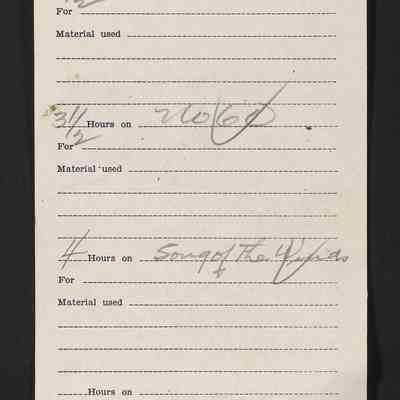 For
Material used
3 1/2 Hours on No 60
For
Material used
4 Hours on Song of The Winds
For
Material used
Hours on